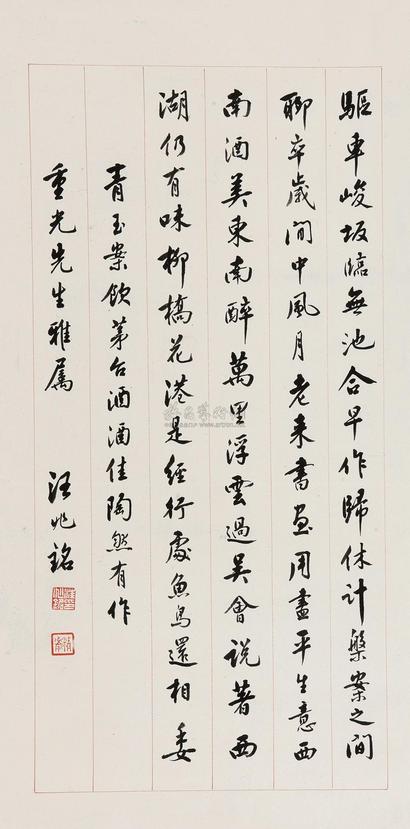 驅車峻坂臨無池合早作歸休計槃案之間
聊卒歲澗中風月老來書畫用盡平生意西
南酒美東南醉萬里浮雲過吳會說著西
湖仍有味柳橋花港是經行處魚鳥還相委
青玉案飲茅台酒酒佳陶然有作
重光先生雅屬
汪兆銘